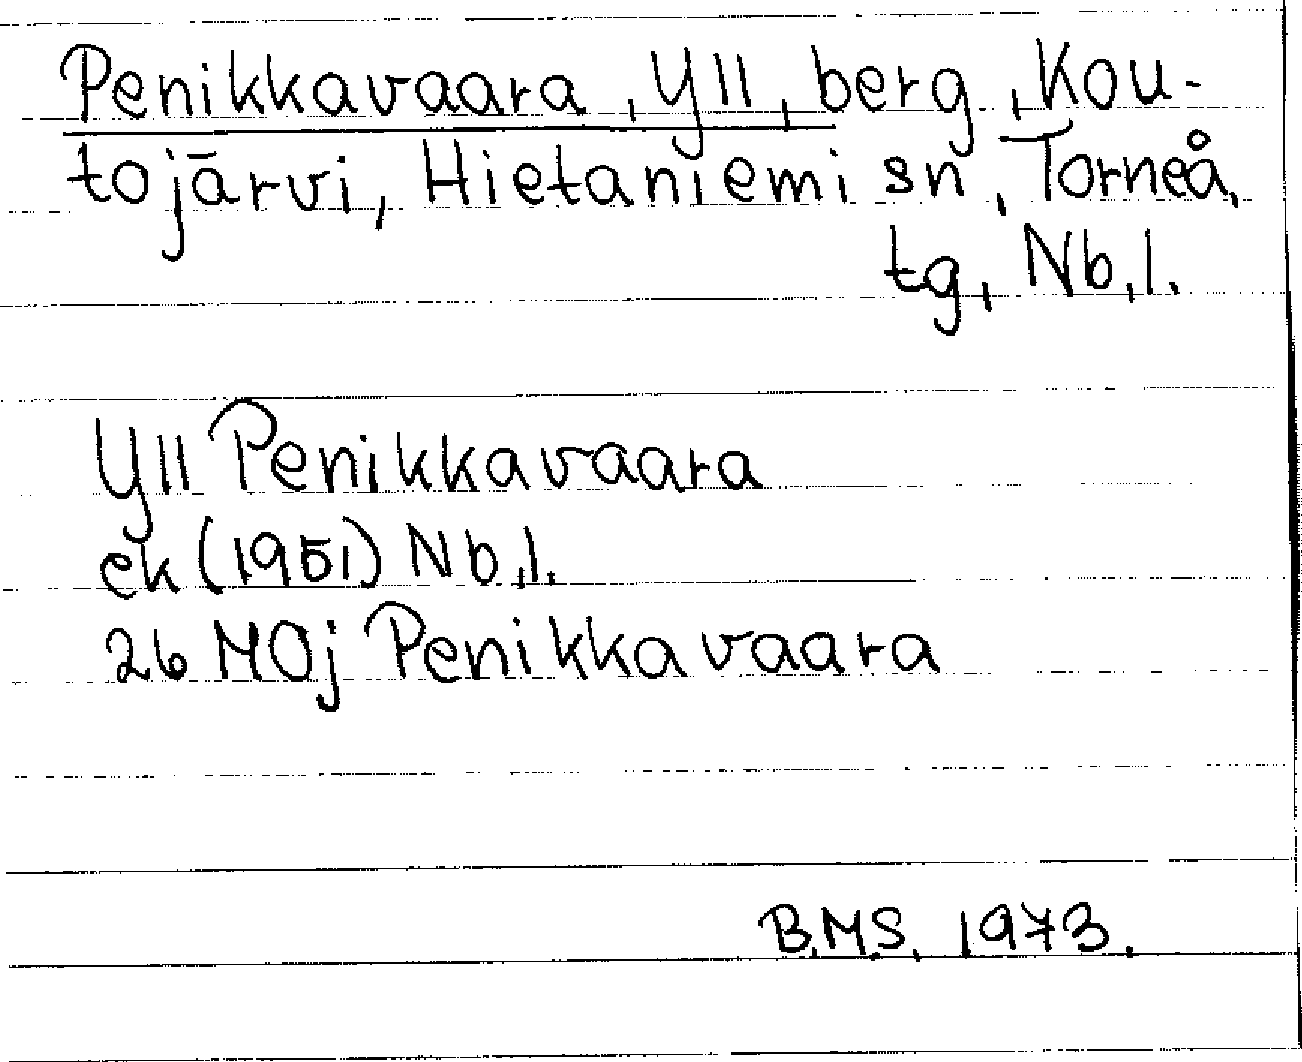 Penikkavaara, Yli, berg, Kou-
tojärvi, Hietaniemi sn, Torneå
tg, Nb.l.
Yli Penikkavaara
ek (1951) Nb.l.
26 MOj Penikkavaara
B.M.S. 1973.